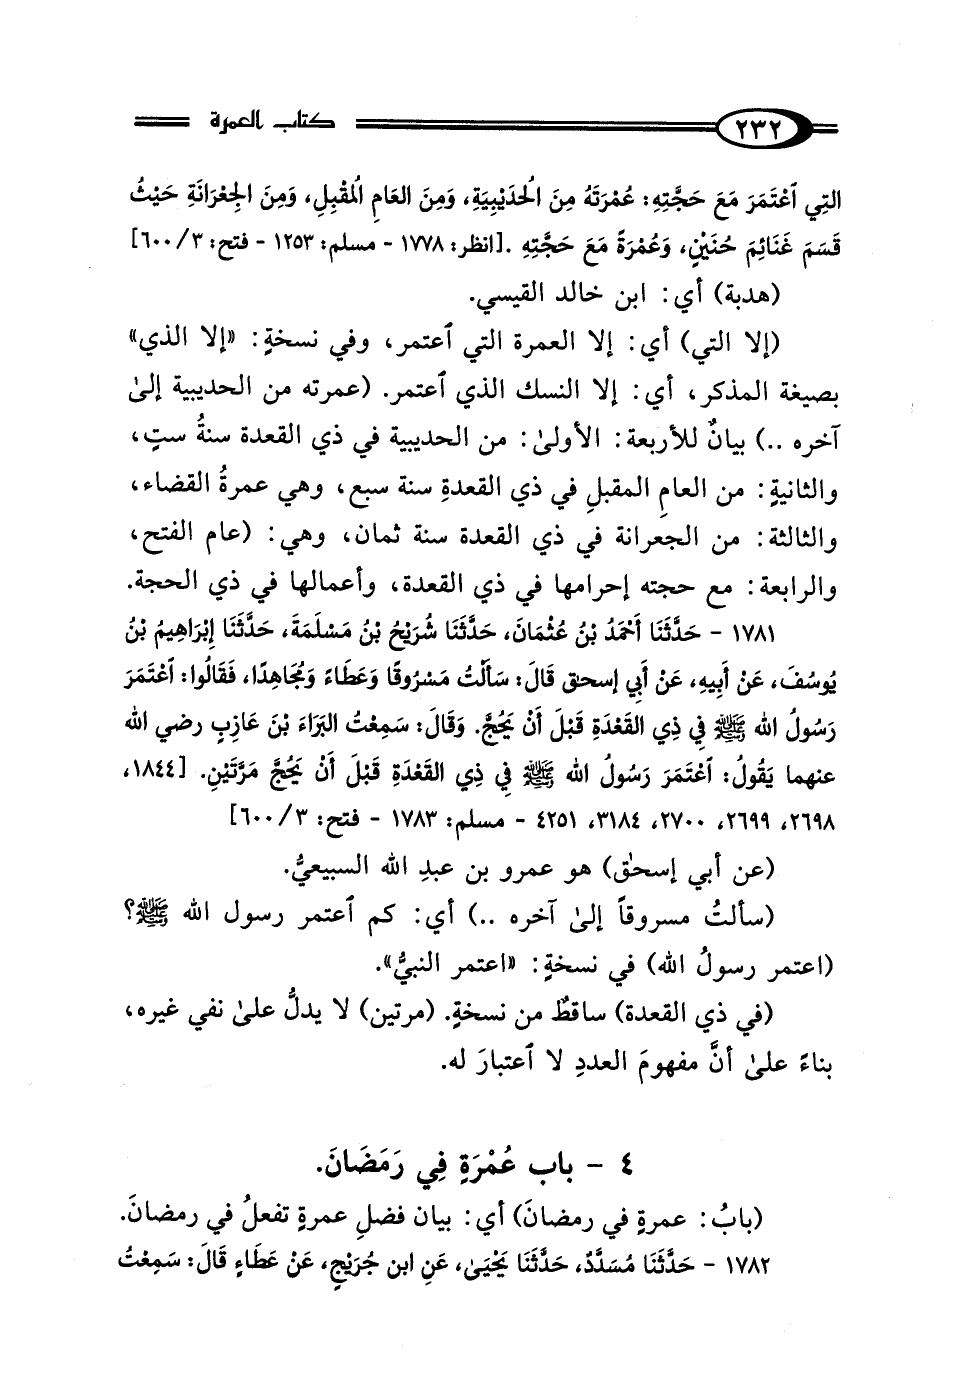 ٢٣٢ كتاب العمرة
التِي اعْتَمَرَ مَعَ حَجَّتِهِ: عُمْرَتَهُ مِنَ الحُدَيْبِيَةِ، وَمِنَ العَامِ المُقْبِلِ، وَمِنَ الجِعْرَانَةِ حَيْثُ
قَسَمَ غَنَائِمَ حُنَيْنٍ، وَعُمْرَةً مَعَ حَجَّتِهِ .[انظر: ١٧٧٨ - مسلم: ١٢٥٣ - فتح: ٣/ ٦٠٠]
(هدبة) أي: ابن خالد القيسي.
(إلا التي) أي: إلا العمرة التي اعتمر، وفي نسخةٍ: «إلا الذي»
بصيغة المذكر، أي: إلا النسك الذي اعتمر. (عمرته من الحديبية إلىٰ
آخره ..) بيانٌ للأربعة: الأولىٰ: من الحديبية في ذي القعدة سنةُ ستٍ،
والثانيةِ: من العامِ المقبلِ في ذي القعدةِ سنة سبع، وهي عمرةُ القضاء،
والثالثة: من الجعرانة في ذي القعدة سنة ثمان، وهي: (عام الفتح،
والرابعة: مع حجته إحرامها في ذي القعدة، وأعمالها في ذي الحجة.
١٧٨١ - حَدَّثَنَا أَحْمَدُ بْنُ عُثْمَانَ، حَدَّثَنَا شُرَيْحُ بْنُ مَسْلَمَةَ، حَدَّثَنَا إِبْرَاهِيمُ بْنُ
يُوسُفَ، عَنْ أَبِيهِ، عَنْ أَبِي إسحق قَالَ: سَأَلْتُ مَسْرُوقًا وَعَطَاءً وَمُجَاهِدًا، فَقَالُوا: اعْتَمَرَ
رَسُولُ الله ﷺ فِي ذِي القَعْدَةِ قَبْلَ أَنْ يَحُجَّ. وَقَالَ: سَمِعْتُ البَرَاءَ بْنَ عَازِبٍ رضي الله
عنهما يَقُولُ: اعْتَمَرَ رَسُولُ الله ﷺ فِي ذِي القَعْدَةِ قَبْلَ أَنْ يَحُجَّ مَرَّتَيْنِ. [١٨٤٤،
٢٦٩٨، ٢٦٩٩، ٢٧٠٠، ٣١٨٤، ٤٢٥١ - مسلم: ١٧٨٣ - فتح: ٣/ ٦٠٠]
(عن أبي إسحٰق) هو عمرو بن عبدِ الله السبيعيُّ.
(سألتُ مسروقاً إلىٰ آخره ..) أي: كم اعتمر رسول الله ﷺ؟
(اعتمر رسولُ الله) في نسخةٍ: «اعتمر النبيُّ».
(في ذي القعدة) ساقطٌ من نسخةٍ. (مرتين) لا يدلُّ علىٰ نفي غيره،
بناءً علىٰ أنَّ مفهومَ العددِ لا اعتبارَ له.
٤ - باب عُمْرَةٍ فِي رَمَضَانَ.
(بابُ: عمرةٍ في رمضانَ) أي: بيان فضلِ عمرةٍ تفعلُ في رمضانَ.
١٧٨٢ - حَدَّثَنَا مُسَدَّدٌ، حَدَّثَنَا يَحْيَىٰ، عَنِ ابن جُرَيْجٍ، عَنْ عَطَاءٍ قَالَ: سَمِعْتُ